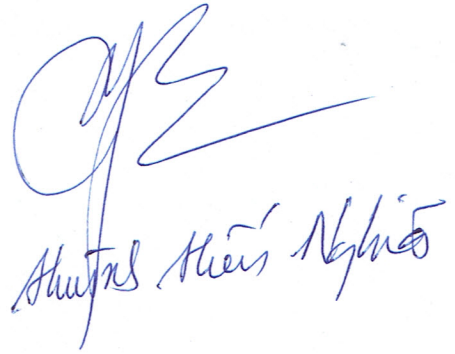 Huỳnh Hiếu Nghĩa